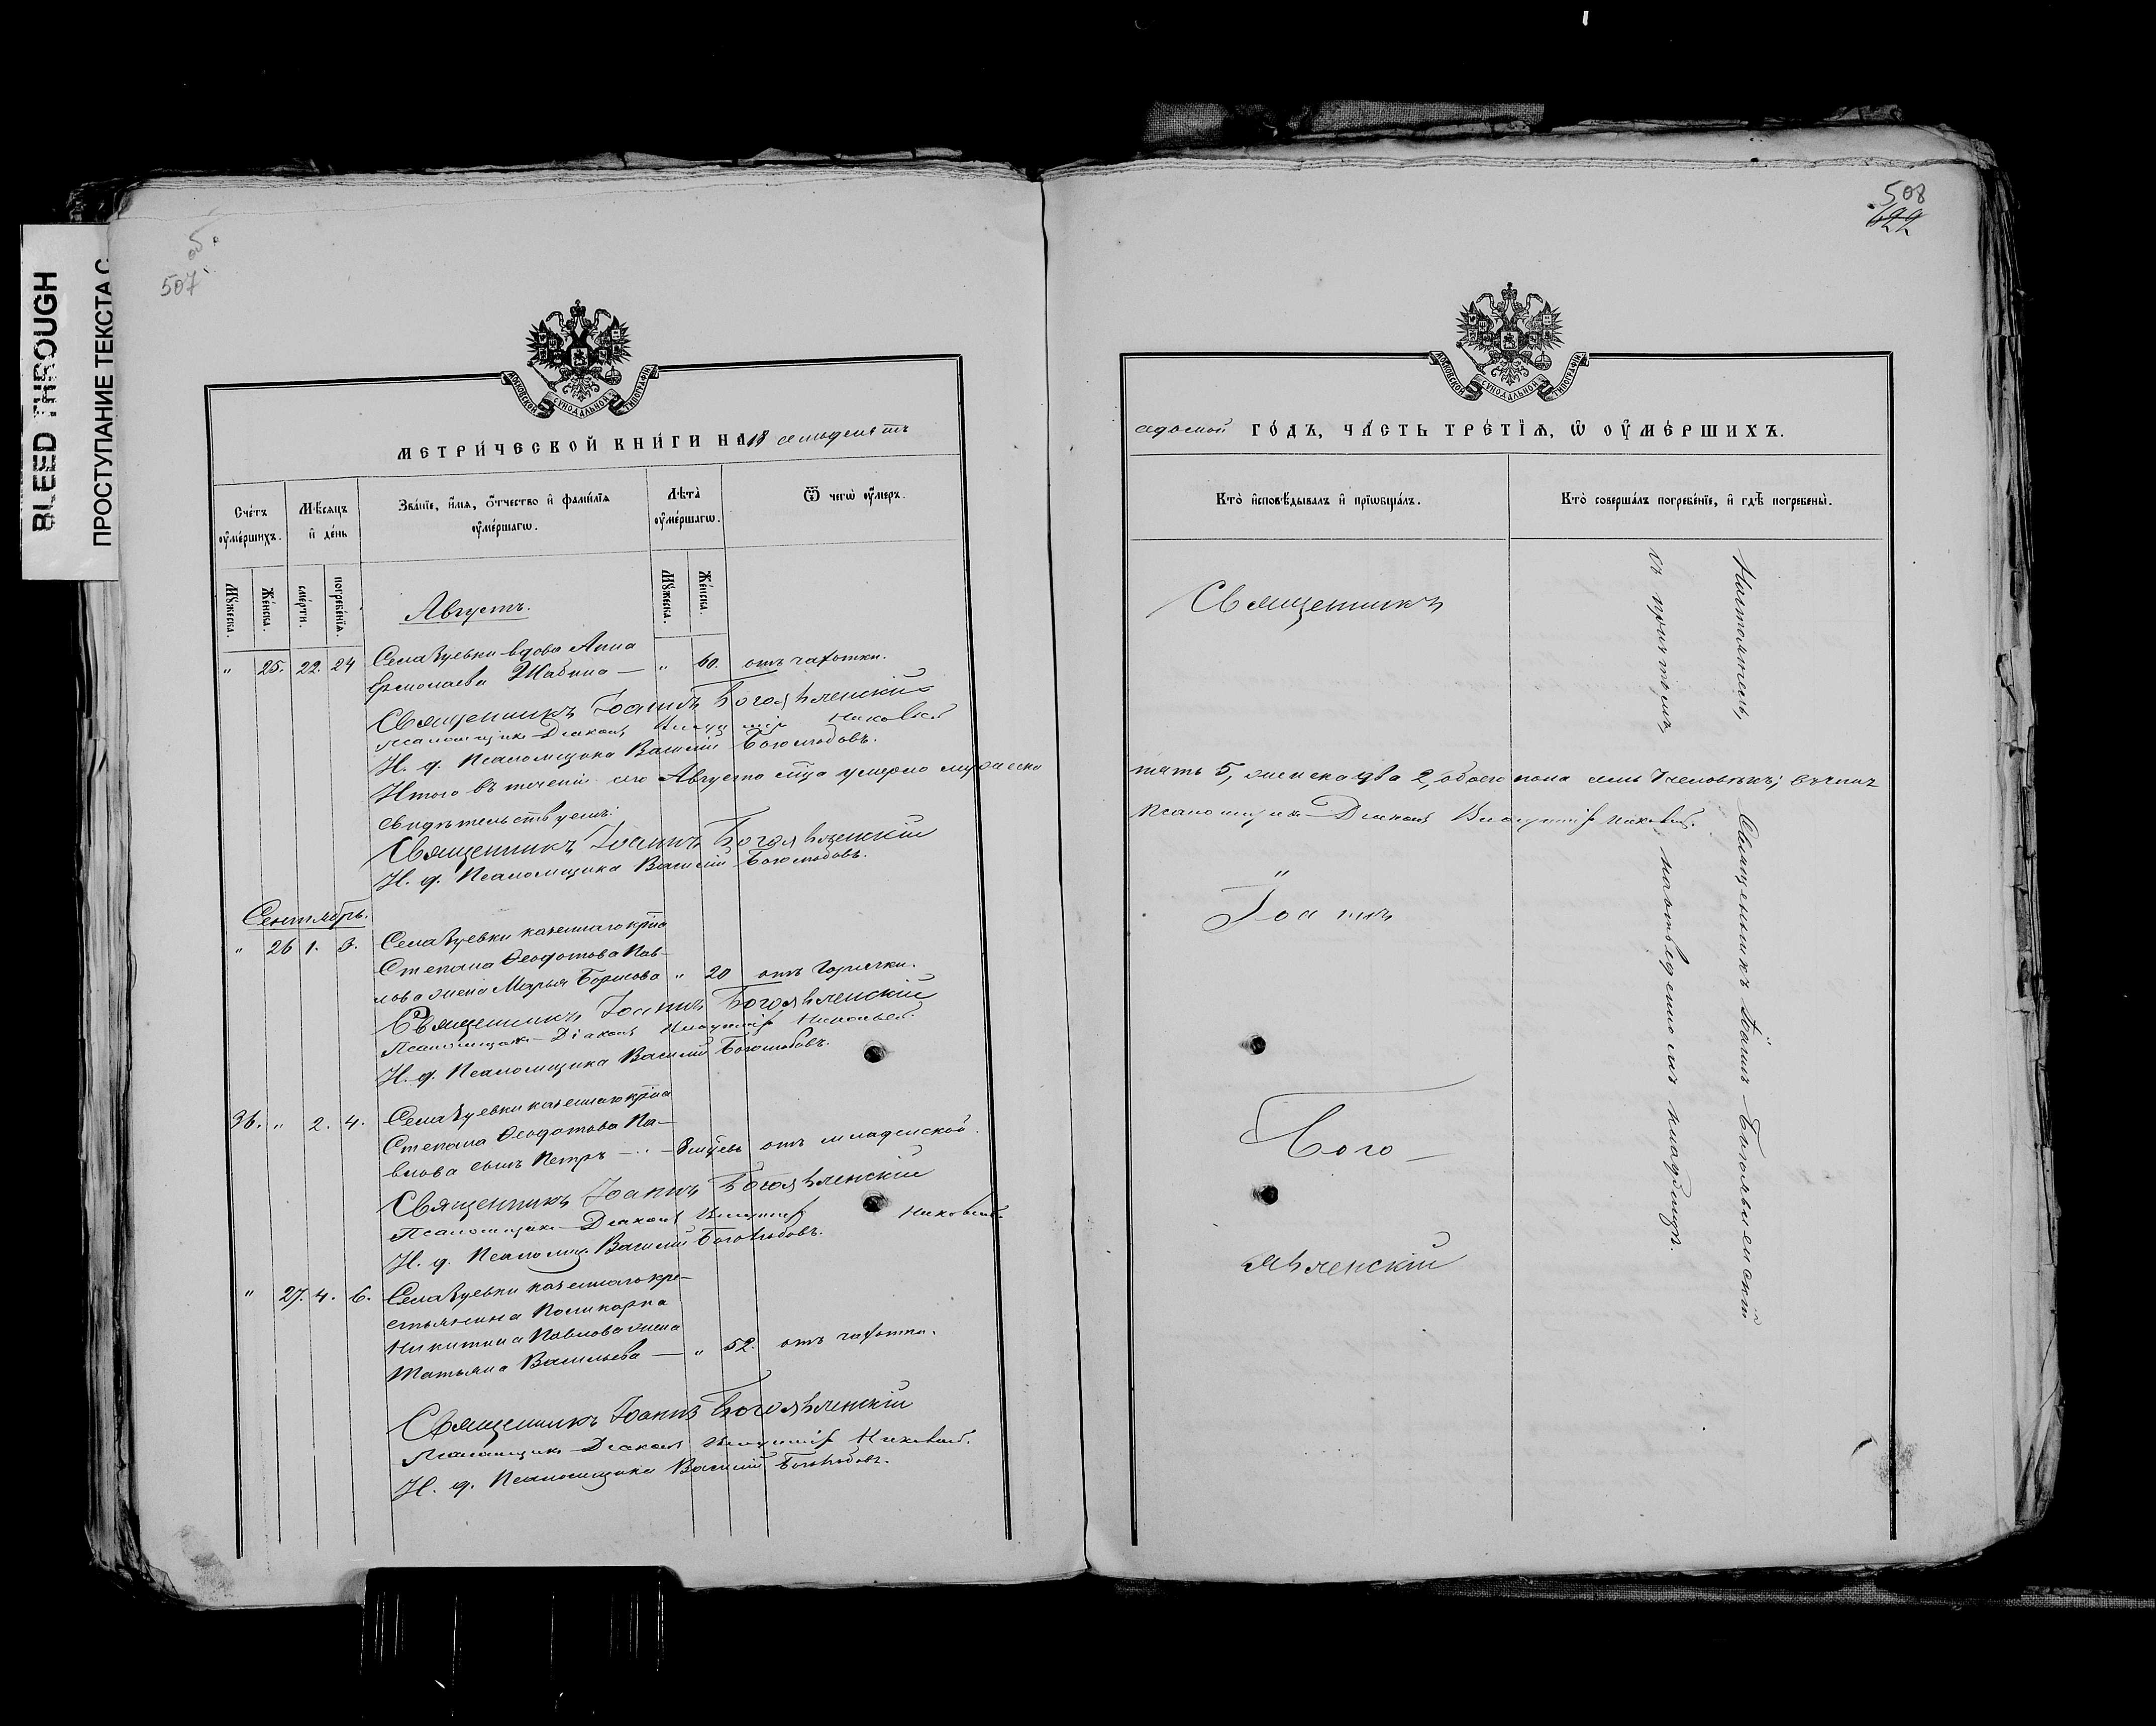 BLEED THROUGH
ПРОСТУПАНИЕ ТЕКСТА С
об.
507
МОСКОВСКОЙ СУНОДАЛЬНОЙ ТИПОГРАФІИ
МЕТРИ́ЧЕСКОЙ КНИ́ГИ НА 18 семьдесятъ
Сче́тъ оу҆ме́ршихъ.
Мѣ́сяцъ и҆ де́нь
Зва́нїе, и҆́мя, ѻ҆́тчество и҆ фами́лїя оу҆ме́ршагѡ.
Лѣ́та оу҆ме́ршагѡ.
Ѿ чегѡ̀ оу҆́меръ.
Мꙋ́жеска.
Же́нска.
сме́рти.
погребе́нїя.
Мꙋ́жеска.
Же́нска.
Августъ.
" 25. 22. 24 Села Зуевки вдова Анна
Ермолаева Жабина — " 60. отъ чахотки.
Священникъ Іоаннъ Богоявленскій
Псаломщикъ-Діаконъ
И. д. Псаломщика Василій Боголюбовъ.
Итого въ теченіи сего Августа м͠ца умерло мужеска
свидѣтельствуемъ:
Священникъ Іоаннъ Богоявленскій
И. д. Псаломщика Василій Боголюбовъ.
Сентябрь.
" 26 1. 3. Села Зуевки казеннаго кр͠на
Степана Ѳеодотова Пав-
лова жена Марья Борисова " 20 отъ горячки.
Священникъ Іоаннъ Богоявленскій
Псаломщикъ-Діаконъ
И. д. Псаломщика Василій Боголюбовъ.
36. " 2. 4. Села Зуевки казеннаго кр͠на
Степана Ѳеодотова Па-
влова сынъ Петръ — 8 м͠цевъ отъ младенской.
Священникъ Іоаннъ Богоявленскій
Псаломщикъ-Діаконъ
И. д. Псаломщ. Василій Боголюбовъ.
" 27. 4. 6. Села Зуевки казеннаго кре-
стьянина Поликарпа
Никитина Павлова жена
Татьяна Васильева — " 52. отъ чахотки.
Священникъ Іоаннъ Богоявленскій
Псаломщикъ-Діаконъ
И. д. Псаломщика Василій Боголюбовъ.
508
622
МОСКОВСКОЙ СУНОДАЛЬНОЙ ТИПОГРАФІИ
седьмой ГО́ДЪ, ЧА́СТЬ ТРЕ́ТЇЯ, Ѡ҆ ОУ҆МЕ́РШИХЪ.
Кто̀ и҆сповѣ́дывалъ и҆ прїѡбща́лъ.
Кто̀ соверша́лъ погребе́нїе, и҆ гдѣ̀ погребены̀.
Священникъ
пять 5, женска два 2, обоего пола семь 7 человѣкъ; въ чемъ
Псаломщикъ-Діаконъ
Іоаннъ
Бого-
явленскій
Настоятель, Священникъ Іоаннъ Богоявленскій
съ причтомъ, на отведенномъ кладбищѣ.